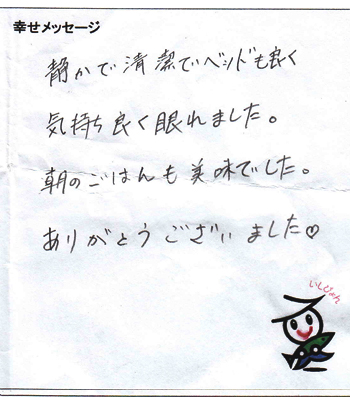 幸せメッセージ
静かで清潔でベッドも良く
気持ち良く眠れました。
朝のごはんも美味でした。
ありがとうございました♡
いしぴょん